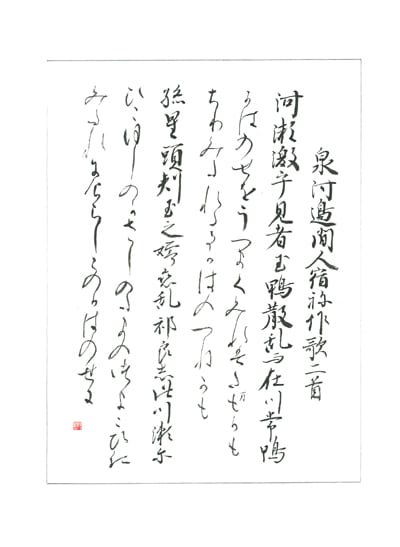 泉河邊間人宿祢作歌二首
河瀬激乎見者玉鴨散乱而在川常鴨
かはのせをうつまくみれは
ちりみたれたるかはのつねかも
孫星頭刺玉之嬬恋乱祁良志此川瀬尓
ひこほしのかさしのたまの
みたれにけらしこのかはのせに